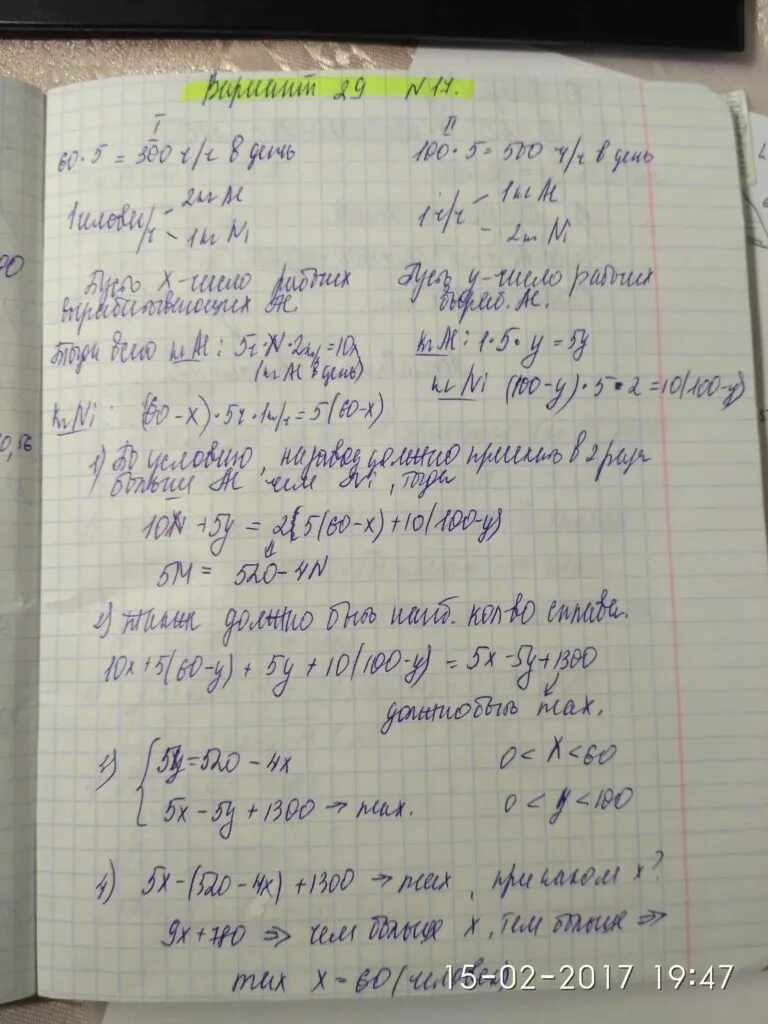 Вариант 29 N 17.
I
60·5 = 300 ч/ч в день
1 челове/ч 2кг Al
1кг Ni
Пусть X-число рабочих
вырабатывающих Al
Тогда всего кг Al: 5ч·X·2кг/ч=10x
(кг Al в день)
кг Ni: (60-x)·5ч·1кг/ч=5(60-x)
II
100·5=500 ч/ч в день
1ч/ч 1кг Al
2кг Ni
Пусть y-число рабочих
выраб. Al.
кг Al: 1·5·y=5y
кг Ni (100-y)·5·2=10(100-y)
00
0,56
1) По условию, на завод должно приехать в 2 раза
больше Al чем Ni, тогда
10x+5y = 2(5(60-x)+10(100-y))
5M = 520-4N
2) должно быть наиб. кол во сплава.
10x+5(60-y)+5y+10(100-y)=5x-5y+1300
должно быть max.
5y=520-4x 0<X<60
5x-5y+1300→max. 0<y<100
4) 5x-(520-4x)+1300→max, при каком x?
9x+780 ⇒ чем больше x, тем больше ⇒
max x=60 (человек)
15-02-2017 19:47